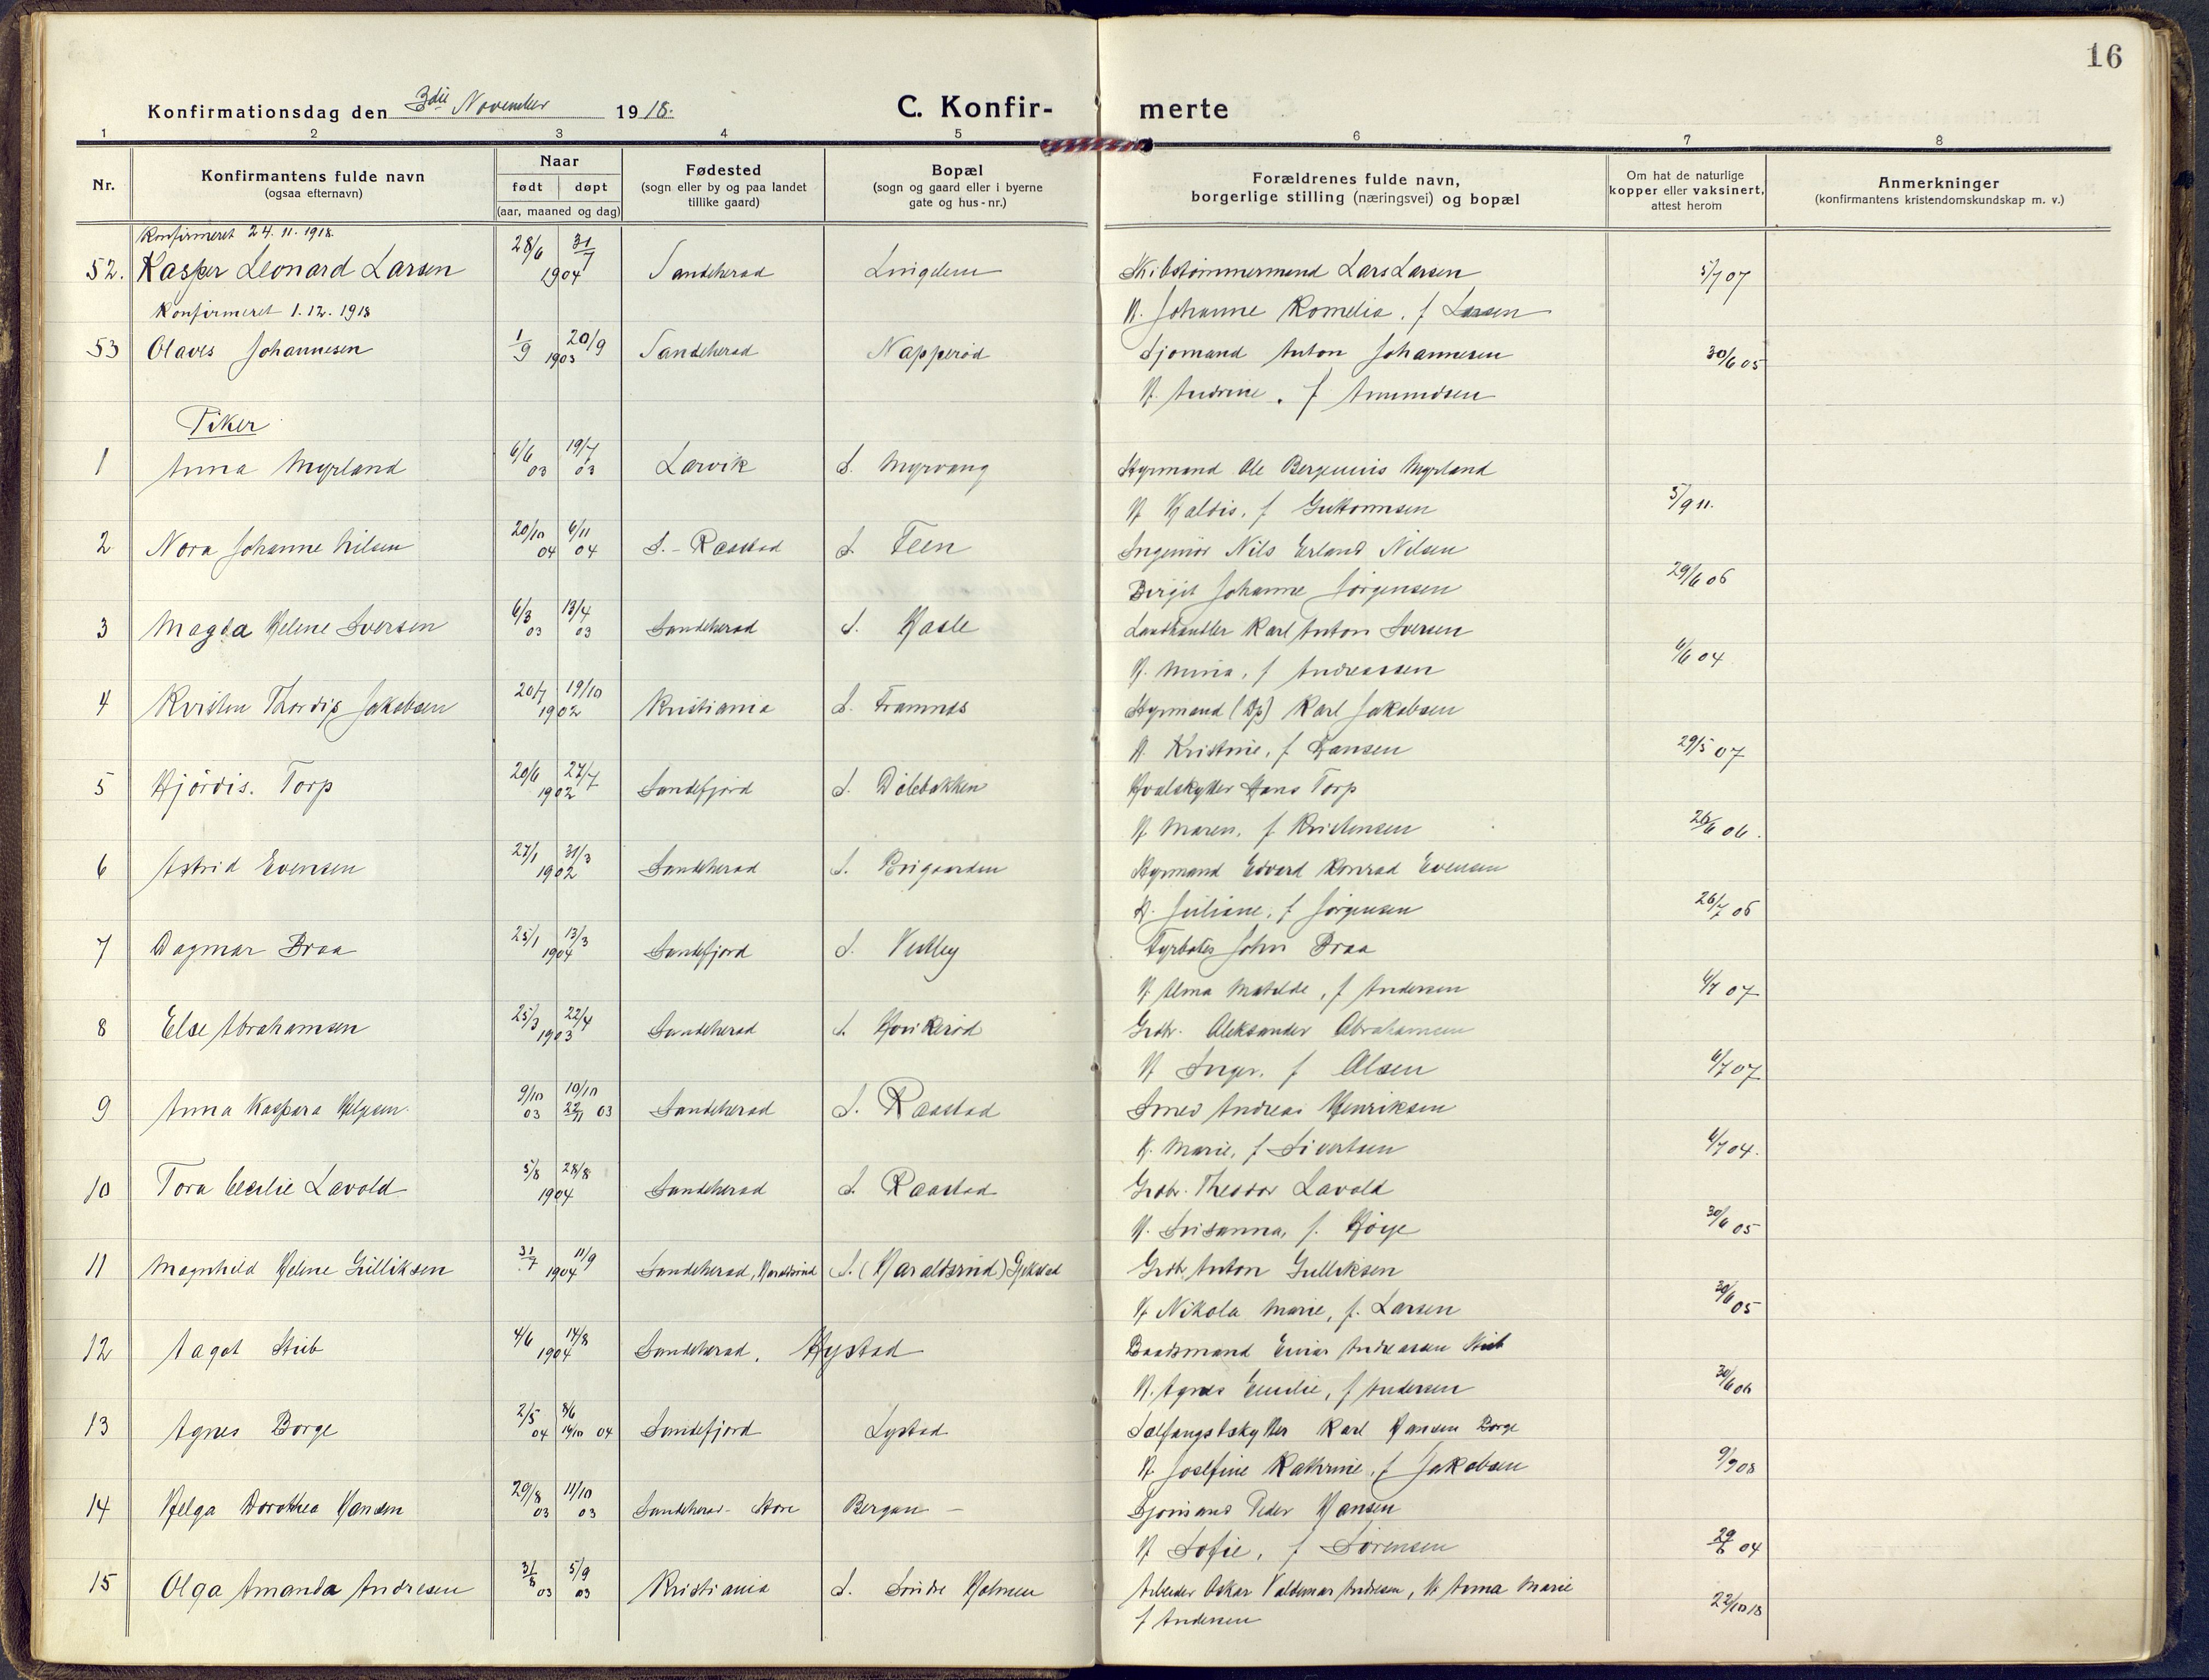 16
Konfirmationsdag den 3die November 1918.
C. Konfir- merte
1 2 3 4 5 6 7 8
Nr.
Konfirmantens fulde navn
(ogsaa efternavn)
Naar
født døpt
(aar, maaned og dag)
Fødested
(sogn eller by og paa landet
tillike gaard)
Bopæl
(sogn og gaard eller i byerne
gate og hus-nr.)
Forældrenes fulde navn,
borgerlige stilling (næringsvei) og bopæl
Om hat de naturlige
kopper eller vaksinert,
attest herom
Anmerkninger
(konfirmantens kristendomskundskap m. v.)
Konfirmeret 24. 11. 1918.
52. Kasper Leonard Larsen 28/6 31/7 1904 Sandeherad Lingelem Skibstømmermand Lars Larsen 5/7 07
Konfirmeret 1.12.1918 H. Johanne Kornelia, f Larsen
53 Olaves Johannesen 1/9 20/9 1903 Sandeherad Napperød Sjømand Anton Johannesen 30/6 05
H. Andrine, f Amundsen
Piker
1 Anna Myrland 6/6 03 19/7 03 Larvik S. Myrvang Styrmand Ole Bergenius Myrland
H Haldis, f Guttormsen 5/9 11.
2 Nora Johanne Nilsen 20/10 04 6/11 04 S. - Raastad S. Feen Ingeniør Nils Erland Nilsen
Birgit Johanne Jørgensen 29/6 06
3 Magda Helene Iversen 6/3 03 13/4 03 Sandeherad S. Hasle Landhandler Karl Anton Iversen
H. Mina, f Andreassen 6/6 04
4 Kristen Thordis Jakobsen 20/7 19/10 1902 Kristiania S. Framnæs Styrmand (Dp) Karl Jakobsen
H. Kristine, f Hansen 29/5 07
5 Hjørdis. Torp 20/6 27/7 1902 Sandefjord S. Dølebakken Hvalskytter Hans Torp
H Maren, f Kristensen 26/6 06.
6 Astrid Evensen 27/1 31/3 1902 Sandeherad S. Prisgaarden Styrmand Edvard Konrad Evensen
H. Juliane, f Jørgensen 26/7 06
7 Dagmar Braa 25/1 13/3 1904 Sandefjord S. Vestley Fyrbøter John Braa
H Alma Matilde, f Andersen 6/7 07
8 Else Abrahamsen 25/3 22/4 1903 Sandeherad S. Hovikerød Grdbr. Aleksander Abrahamsen
H Inger. f Olsen 6/7 07
9 Anna Kaspara Helgesen 9/10 03 10/10 22/11 03 Sandeherad S. Raastad Smed Andreas Henriksen
H. Marie, f Sivertsen 6/7 04.
10 Tora Cecilie Lavold 5/8 28/8 1904 Sandeherad S. Raastad Grdbr. Theodor Lavold
H. Susanna, f. Høye 30/6 05
11 Magnhild Helene Gulliksen 31/7 11/9 1904 Sandeherad, Haraldsrud S. (Haraldsrud) Gjekstad Grdbr Anton Gulliksen
H Nikola Marie, f. Larsen 30/6 05
12 Aagot Stub 4/6 14/8 1904 Sandeherad, Hystad Baadsmand Einar Andreassen Stub
H. Agnes Emilie, f Andersen 30/6 06
13 Agnes Borge 2/5 04 8/6 19/10 04 Sandefjord Lystad Sælfangstskytter Karl Hansen Borge
H Josefine Kathrine, f Jakobsen 9/9 08
14 Helga Dorothea Hansen 29/8 03 11/10 03 Sandeherad - Store Bergan - Sjømand Peder Hansen
H Sofie, f Sørensen 29/6 04
15 Olga Amanda Andresen 31/8 03 5/9 03 Kristiania S. Søndre Holmen Arbeider Oskar Valdemar Andresen, H Anna Marie
f Andersen 22/10 18